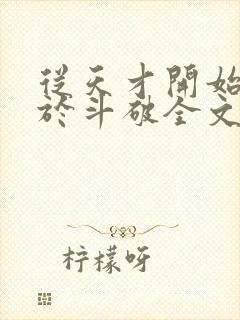 從天才開始
於斗破全文
柠檬呀